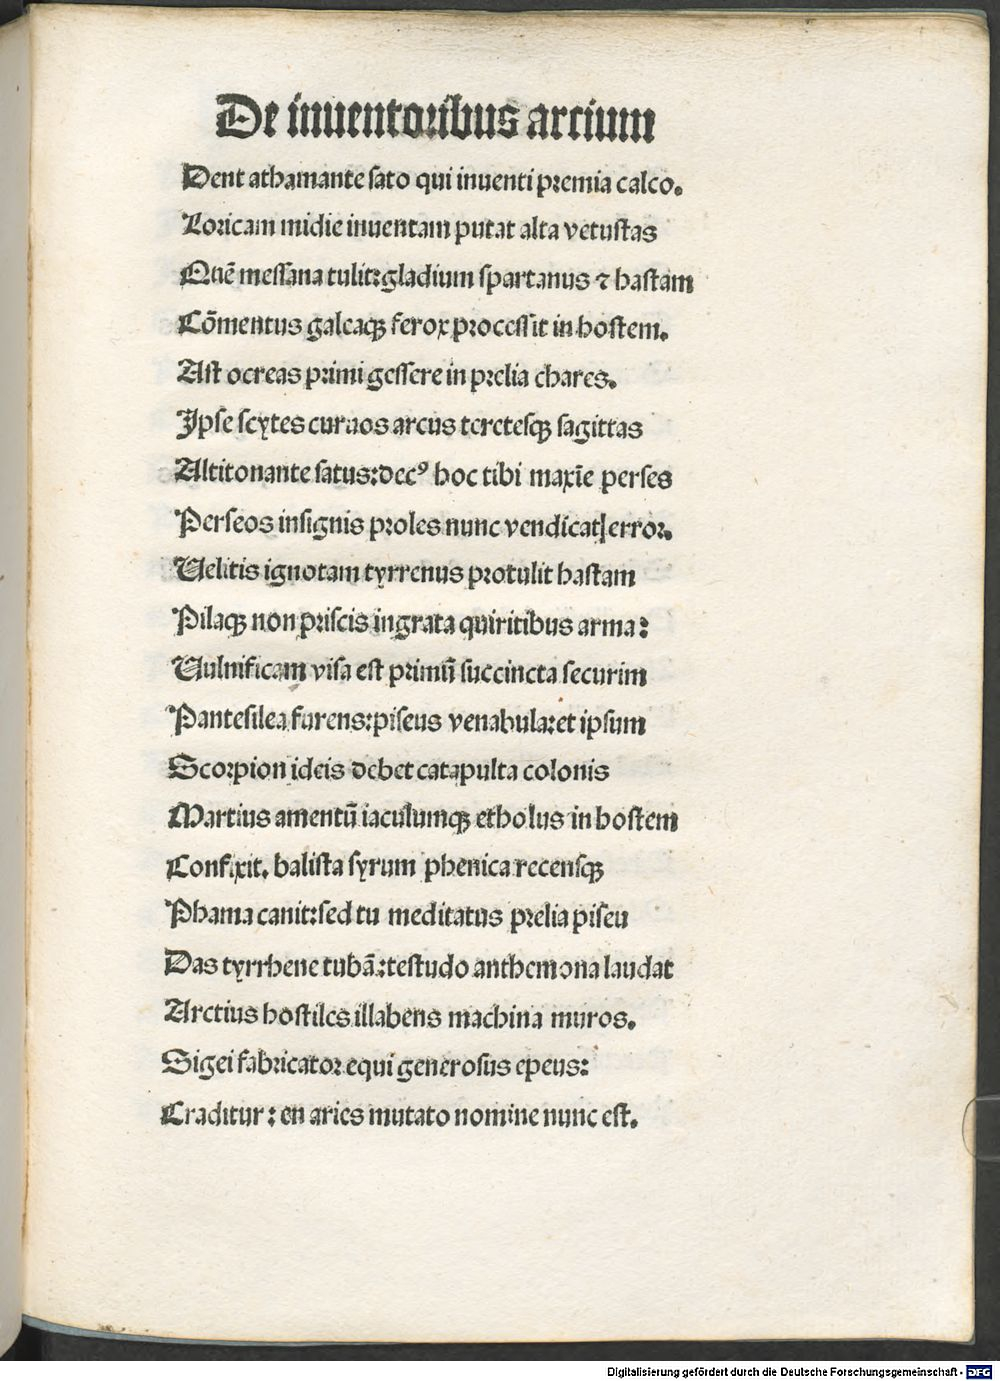 De inuentoribus artium
Dent athamante sato qui inuenti premia calco.
Loricam midie inuentam putat alta vetustas
Quē messana tulit:gladium spartanus ⁊ hastam
Cōmentus galeaqꝫ ferox processit in hostem.
Ast ocreas primi gessere in prelia chares.
Ipse scytes curuos arcus teretesqꝫ sagittas
Altitonante satus:decꝰ hoc tibi maxīe perses
Perseos insignis proles nunc vendicat error.
Uelitis ignotam tyrrenus protulit hastam
Pilaqꝫ non priscis ingrata quiritibus arma:
Uulnificam visa est primū succincta securim
Pantesilea furens:piseus venabula:et ipsum
Scorpion ideis debet catapulta colonis
Martius amentū iaculumqꝫ etholus in hostem
Confixit. balista syrum phenica recensqꝫ
Phama canit:sed tu meditatus prelia piseu
Das tyrrhene tubā:testudo anthemona laudat
Arctius hostiles illabens machina muros.
Sigei fabricator equi generosus epeus:
Craditur: en aries mutato nomine nunc est.
Digitalisierung gefördert durch die Deutsche Forschungsgemeinschaft - DFG